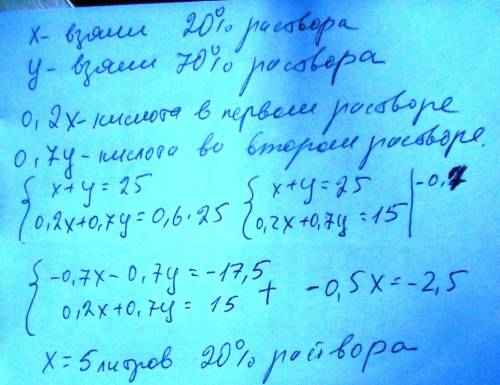 x- взяли 20% раствора
y- взяли 70% раствора
0,2x-кислота в первом растворе
0,7y-кислота во втором растворе.
{ x+y=25 { x+y=25 | -0,7
0,2x+0,7y=0,6·25 0,2x+0,7y=15
{ -0,7x-0,7y=-17,5
0,2x+0,7y=15 + -0,5x=-2,5
x=5литров 20% раствора